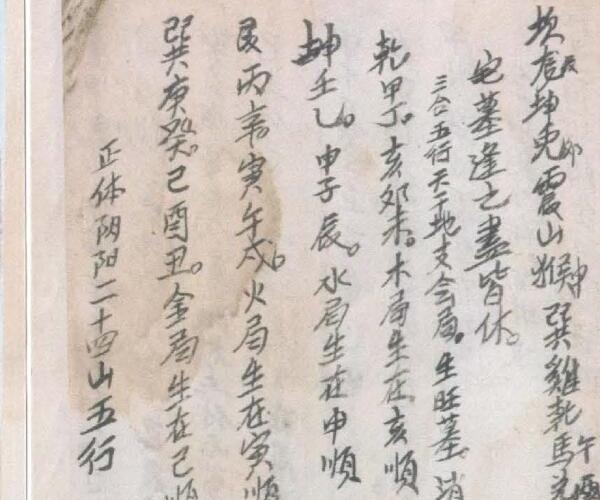 坎龙辰坤兔卯震山猴申巽雞乾馬午
宅墓逢之盡皆休。
三合五行天干地支会局。生旺墓。消
乾甲丁。亥卯未。木局生在亥順
坤壬乙。申子辰。水局生在申順
艮丙辛寅午戌。火局生在寅順
巽庚癸。巳酉丑。金局生在巳順
正体阴阳二十四山五行